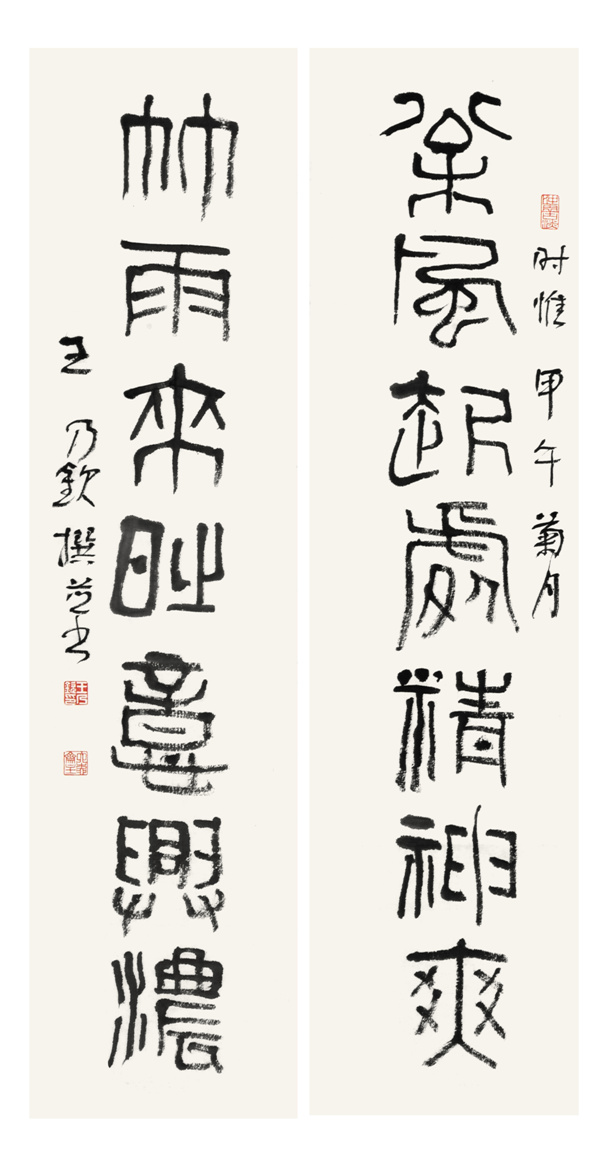 时惟甲午菊月
松風起處精神爽
竹雨來時意興濃
王乃欽撰並书